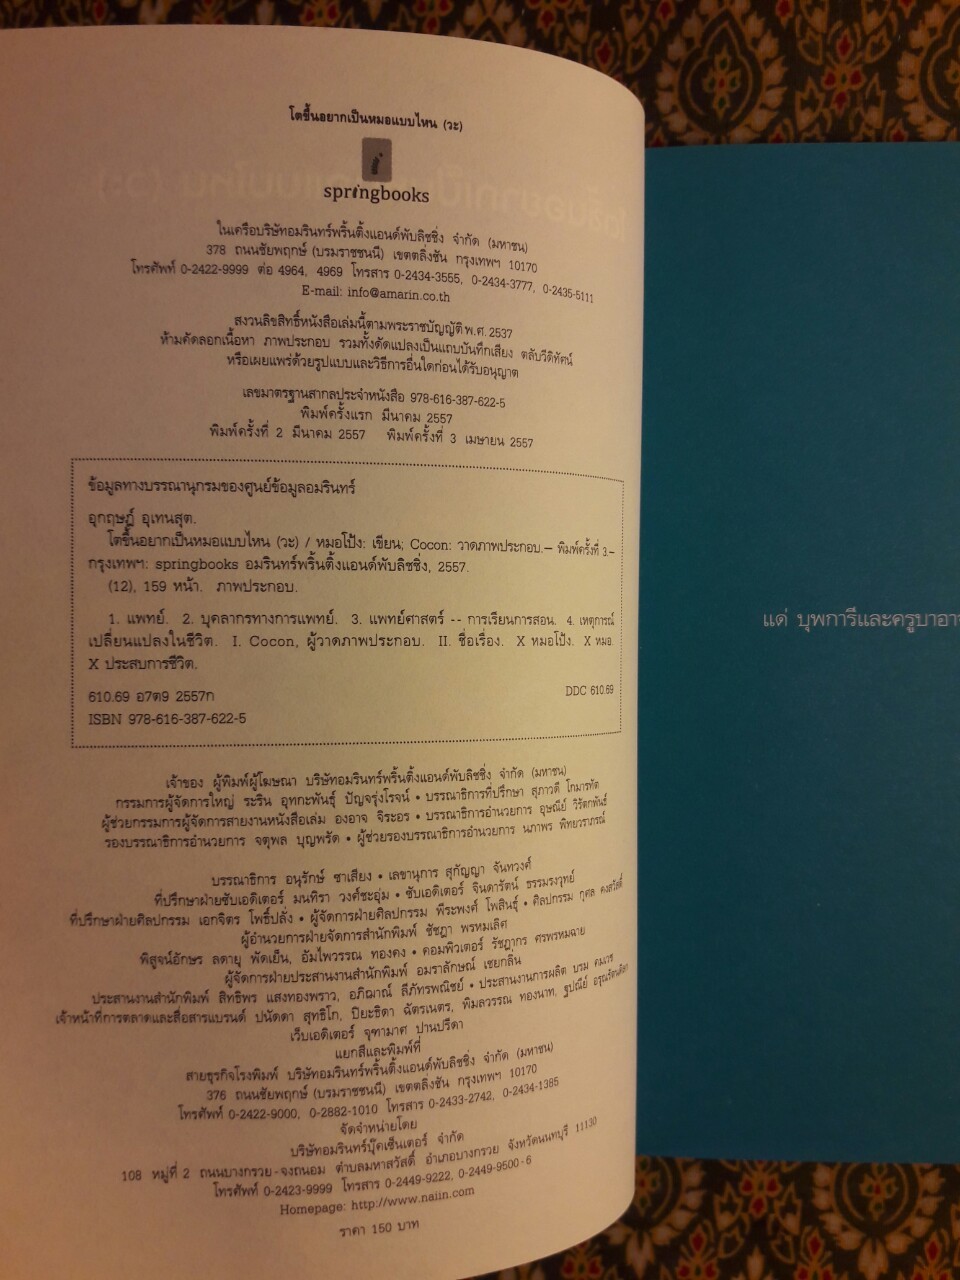 โตขึ้นอยากเป็นหมอแบบไหน (วะ)
i
springbooks
ในเครือบริษัทอมรินทร์พริ้นติ้งแอนด์พับลิชชิ่ง จำกัด (มหาชน)
378 ถนนชัยพฤกษ์ (บรมราชชนนี) เขตตลิ่งชัน กรุงเทพฯ 10170
โทรศัพท์ 0-2422-9999 ต่อ 4964, 4969 โทรสาร 0-2434-3555, 0-2434-3777, 0-2435-5111
E-mail: info@amarin.co.th
สงวนลิขสิทธิ์หนังสือเล่มนี้ตามพระราชบัญญัติ พ.ศ. 2537
ห้ามคัดลอกเนื้อหา ภาพประกอบ รวมทั้งดัดแปลงเป็นแถบบันทึกเสียง ตลับวีดิทัศน์
หรือเผยแพร่ด้วยรูปแบบและวิธีการอื่นใดก่อนได้รับอนุญาต
เลขมาตรฐานสากลประจำหนังสือ 978-616-387-622-5
พิมพ์ครั้งแรก มีนาคม 2557
พิมพ์ครั้งที่ 2 มีนาคม 2557 พิมพ์ครั้งที่ 3 เมษายน 2557
ข้อมูลทางบรรณานุกรมของศูนย์ข้อมูลอมรินทร์
อุกฤษฏ์ อุเทนสุต.
โตขึ้นอยากเป็นหมอแบบไหน (วะ) / หมอโป้ง: เขียน; Cocon: วาดภาพประกอบ.— พิมพ์ครั้งที่ 3.—
กรุงเทพฯ: springbooks อมรินทร์พริ้นติ้งแอนด์พับลิชชิ่ง, 2557.
(12), 159 หน้า. ภาพประกอบ.
1. แพทย์. 2. บุคลากรทางการแพทย์. 3. แพทย์ศาสตร์ -- การเรียนการสอน. 4. เหตุการณ์
เปลี่ยนแปลงในชีวิต. I. Cocon, ผู้วาดภาพประกอบ. II. ชื่อเรื่อง. X หมอโป้ง. X หมอ.
X ประสบการชีวิต.
610.69 อ7ต9 2557ก DDC 610.69
ISBN 978-616-387-622-5
เจ้าของ ผู้พิมพ์ผู้โฆษณา บริษัทอมรินทร์พริ้นติ้งแอนด์พับลิชชิ่ง จำกัด (มหาชน)
กรรมการผู้จัดการใหญ่ ระริน อุทกะพันธุ์ ปัญจรุ่งโรจน์ • บรรณาธิการที่ปรึกษา สุภาวดี โกมารทัต
ผู้ช่วยกรรมการผู้จัดการสายงานหนังสือเล่ม องอาจ จิระอร • บรรณาธิการอำนวยการ อุษณีย์ วิรัตกพันธ์
รองบรรณาธิการอำนวยการ จตุพล บุญพรัด • ผู้ช่วยรองบรรณาธิการอำนวยการ นภาพร พิทยวราภรณ์
บรรณาธิการ อนุรักษ์ ซาเสียง • เลขานุการ สุกัญญา จันทวงศ์
ที่ปรึกษาฝ่ายซับเอดิเตอร์ มนทิรา วงศ์ชะอุ่ม • ซับเอดิเตอร์ จินดารัตน์ ธรรมรงวุทย์
ที่ปรึกษาฝ่ายศิลปกรรม เอกจิตร โพธิ์ปลั่ง • ผู้จัดการฝ่ายศิลปกรรม พีระพงศ์ โพสินธุ์ • ศิลปกรรม กุศล คงสวัสดิ์
ผู้อำนวยการฝ่ายจัดการสำนักพิมพ์ ชัชฎา พรหมเลิศ
พิสูจน์อักษร ลดายุ พัดเย็น, อัมไพวรรณ ทองคง • คอมพิวเตอร์ รัชฎากร ศรพรหมฉาย
ผู้จัดการฝ่ายประสานงานสำนักพิมพ์ อมราลักษณ์ เชยกลิ่น
ประสานงานสำนักพิมพ์ สิทธิพร แสงทองพราว, อภิฌาณ์ ลีภัทรพณิชย์ • ประสานงานการผลิต
เจ้าหน้าที่การตลาดและสื่อสารแบรนด์ ปนัดดา สุทธิโก, ปิยะธิดา ฉัตรเนตร, พิมลวรรณ ทองนาท,
เว็บเอดิเตอร์ จุฑามาศ ปานปรีดา
แยกสีและพิมพ์ที่
สายธุรกิจโรงพิมพ์ บริษัทอมรินทร์พริ้นติ้งแอนด์พับลิชชิ่ง จำกัด (มหาชน)
376 ถนนชัยพฤกษ์ (บรมราชชนนี) เขตตลิ่งชัน กรุงเทพฯ 10170
โทรศัพท์ 0-2422-9000, 0-2882-1010 โทรสาร 0-2433-2742, 0-2434-1385
จัดจำหน่ายโดย
บริษัทอมรินทร์บุ๊คเซ็นเตอร์ จำกัด
108 หมู่ที่ 2 ถนนบางกรวย-จงถนอม ตำบลมหาสวัสดิ์ อำเภอบางกรวย จังหวัดนนทบุรี 11130
โทรศัพท์ 0-2423-9999 โทรสาร 0-2449-9222, 0-2449-9500-6
Homepage: http://www.naiin.com
ราคา 150 บาท
แด่ บุพการีและครูบาอาจ